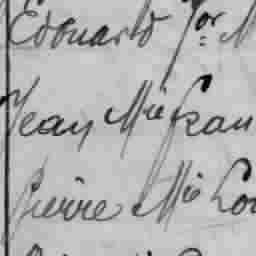 Edouard Jor M
Jean Mie Fran
Pierre Mie Lou